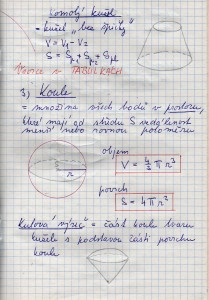 Komolý kužel
- kužel „bez špičky"
V = V₁ - V₂
S = Sp₁ + Sp₂ + Spl
VZORCE V TABULKÁCH
3) Koule
= množina všech bodů v prostoru,
které mají od středu S vzdálenost
menší nebo rovnou poloměru
objem
V = 4/3 π r³
r
povrch
S = 4 π r²
Kulová výseč = část koule tvaru
kužele s podstavou částí povrchu
koule